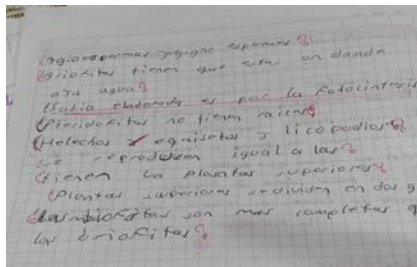 ¿Angiospermas y gignospermas?
¿Briofitas tienen que estar en donde
aya agua?
¿Sabia elaborada es por la fotocinteris
¿Pteridofitas no tienen raices?
¿Helechos y equisetos y licopodios?
se reproducen igual a las?
¿tienen la plantas superiores?
¿Plantas superiores se dividen en dos g
¿Las briofitas son mas completas q
las briofitas?